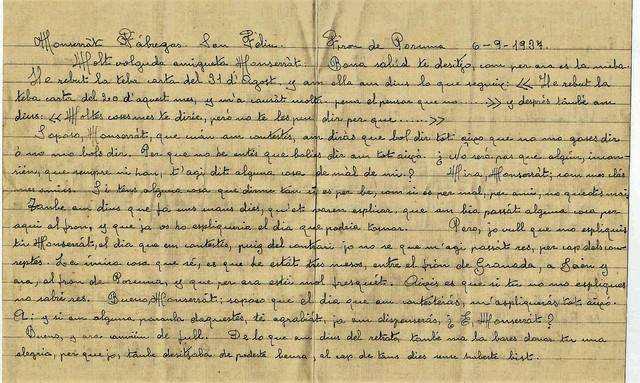 Monserràt Fábregas. San Feliu. Fron de Porcuna 6-9-1937.
Molt volguda amigueta Monserràt. Bona salud te desitjo, com per ara es la meba.
He rebut la teba carta del 31 d'Agost, y am ella am dius lo que segueix: << He rebut la
teba carta del 20 d'aquest mes, y m'a causàt molta pena el pensar que no ...... >> y desprès també am
dius: << Moltes coses mes te diria, però no te les puc dir per que ...... >>
Soposo, Monserràt, que cuàn am contestes, am diràs que bol dir tot aixo que no ma goses dir
ó no ma bols dir. Per que no he entés que bolies dir am tot aixó. ¿No serà pas que algún, incon-
cién, que sempre ni han, t'agi dit alguna cosa de màl de mi? Mira, Monserràt; com mes clàs
mes amics. Si tens alguna cosa que dirme tan si es per be, com si es per mal, per mi, no quedis mal.
També am dius que fa uns cuans dies, qu'et varem esplicar, que em bia passàt alguna cosa per
aqui al fron, y que ja os ho esplicaria el dia que podria tornar. Pero, jo vull que mo espliquis
tu Monserràt, el dia que em contestes, puig del contrari jo no se que m'agi passàt res, per cap dels con-
ceptes. La única cosa que sé, es que he estàt tres mesos, entre el frón de Granada, a Jaén y
ara, al frón de Porcuna, y que per ara estic mol fresquét. Aixís es que si tu no mo espliques
no sabré res. Bueno, Monserràt; soposo que el dia que am contesteràs, m'esplicaràs tot aixó.
A: y si am alguna paraula daquestes, te agrabiàt, ja am dispensaràs, ¿E, Monserràt?
Bueno, y ara cambiem de full. De lo que am dius del retrato, també ma la bares donar tu una
alegria, per que jo, també desitjaba de poderte beura, al cap de tans dies sense haberte bist.